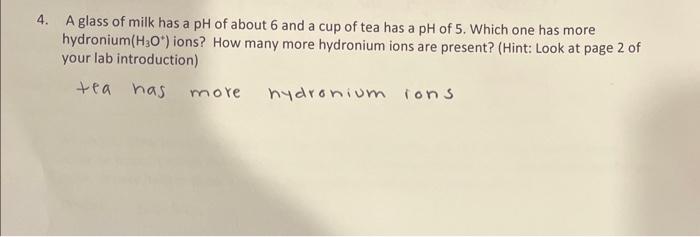 4. A glass of milk has a pH of about 6 and a cup of tea has a pH of 5. Which one has more
hydronium(H₃O⁺) ions? How many more hydronium ions are present? (Hint: Look at page 2 of
your lab introduction)
tea has more hydronium ions